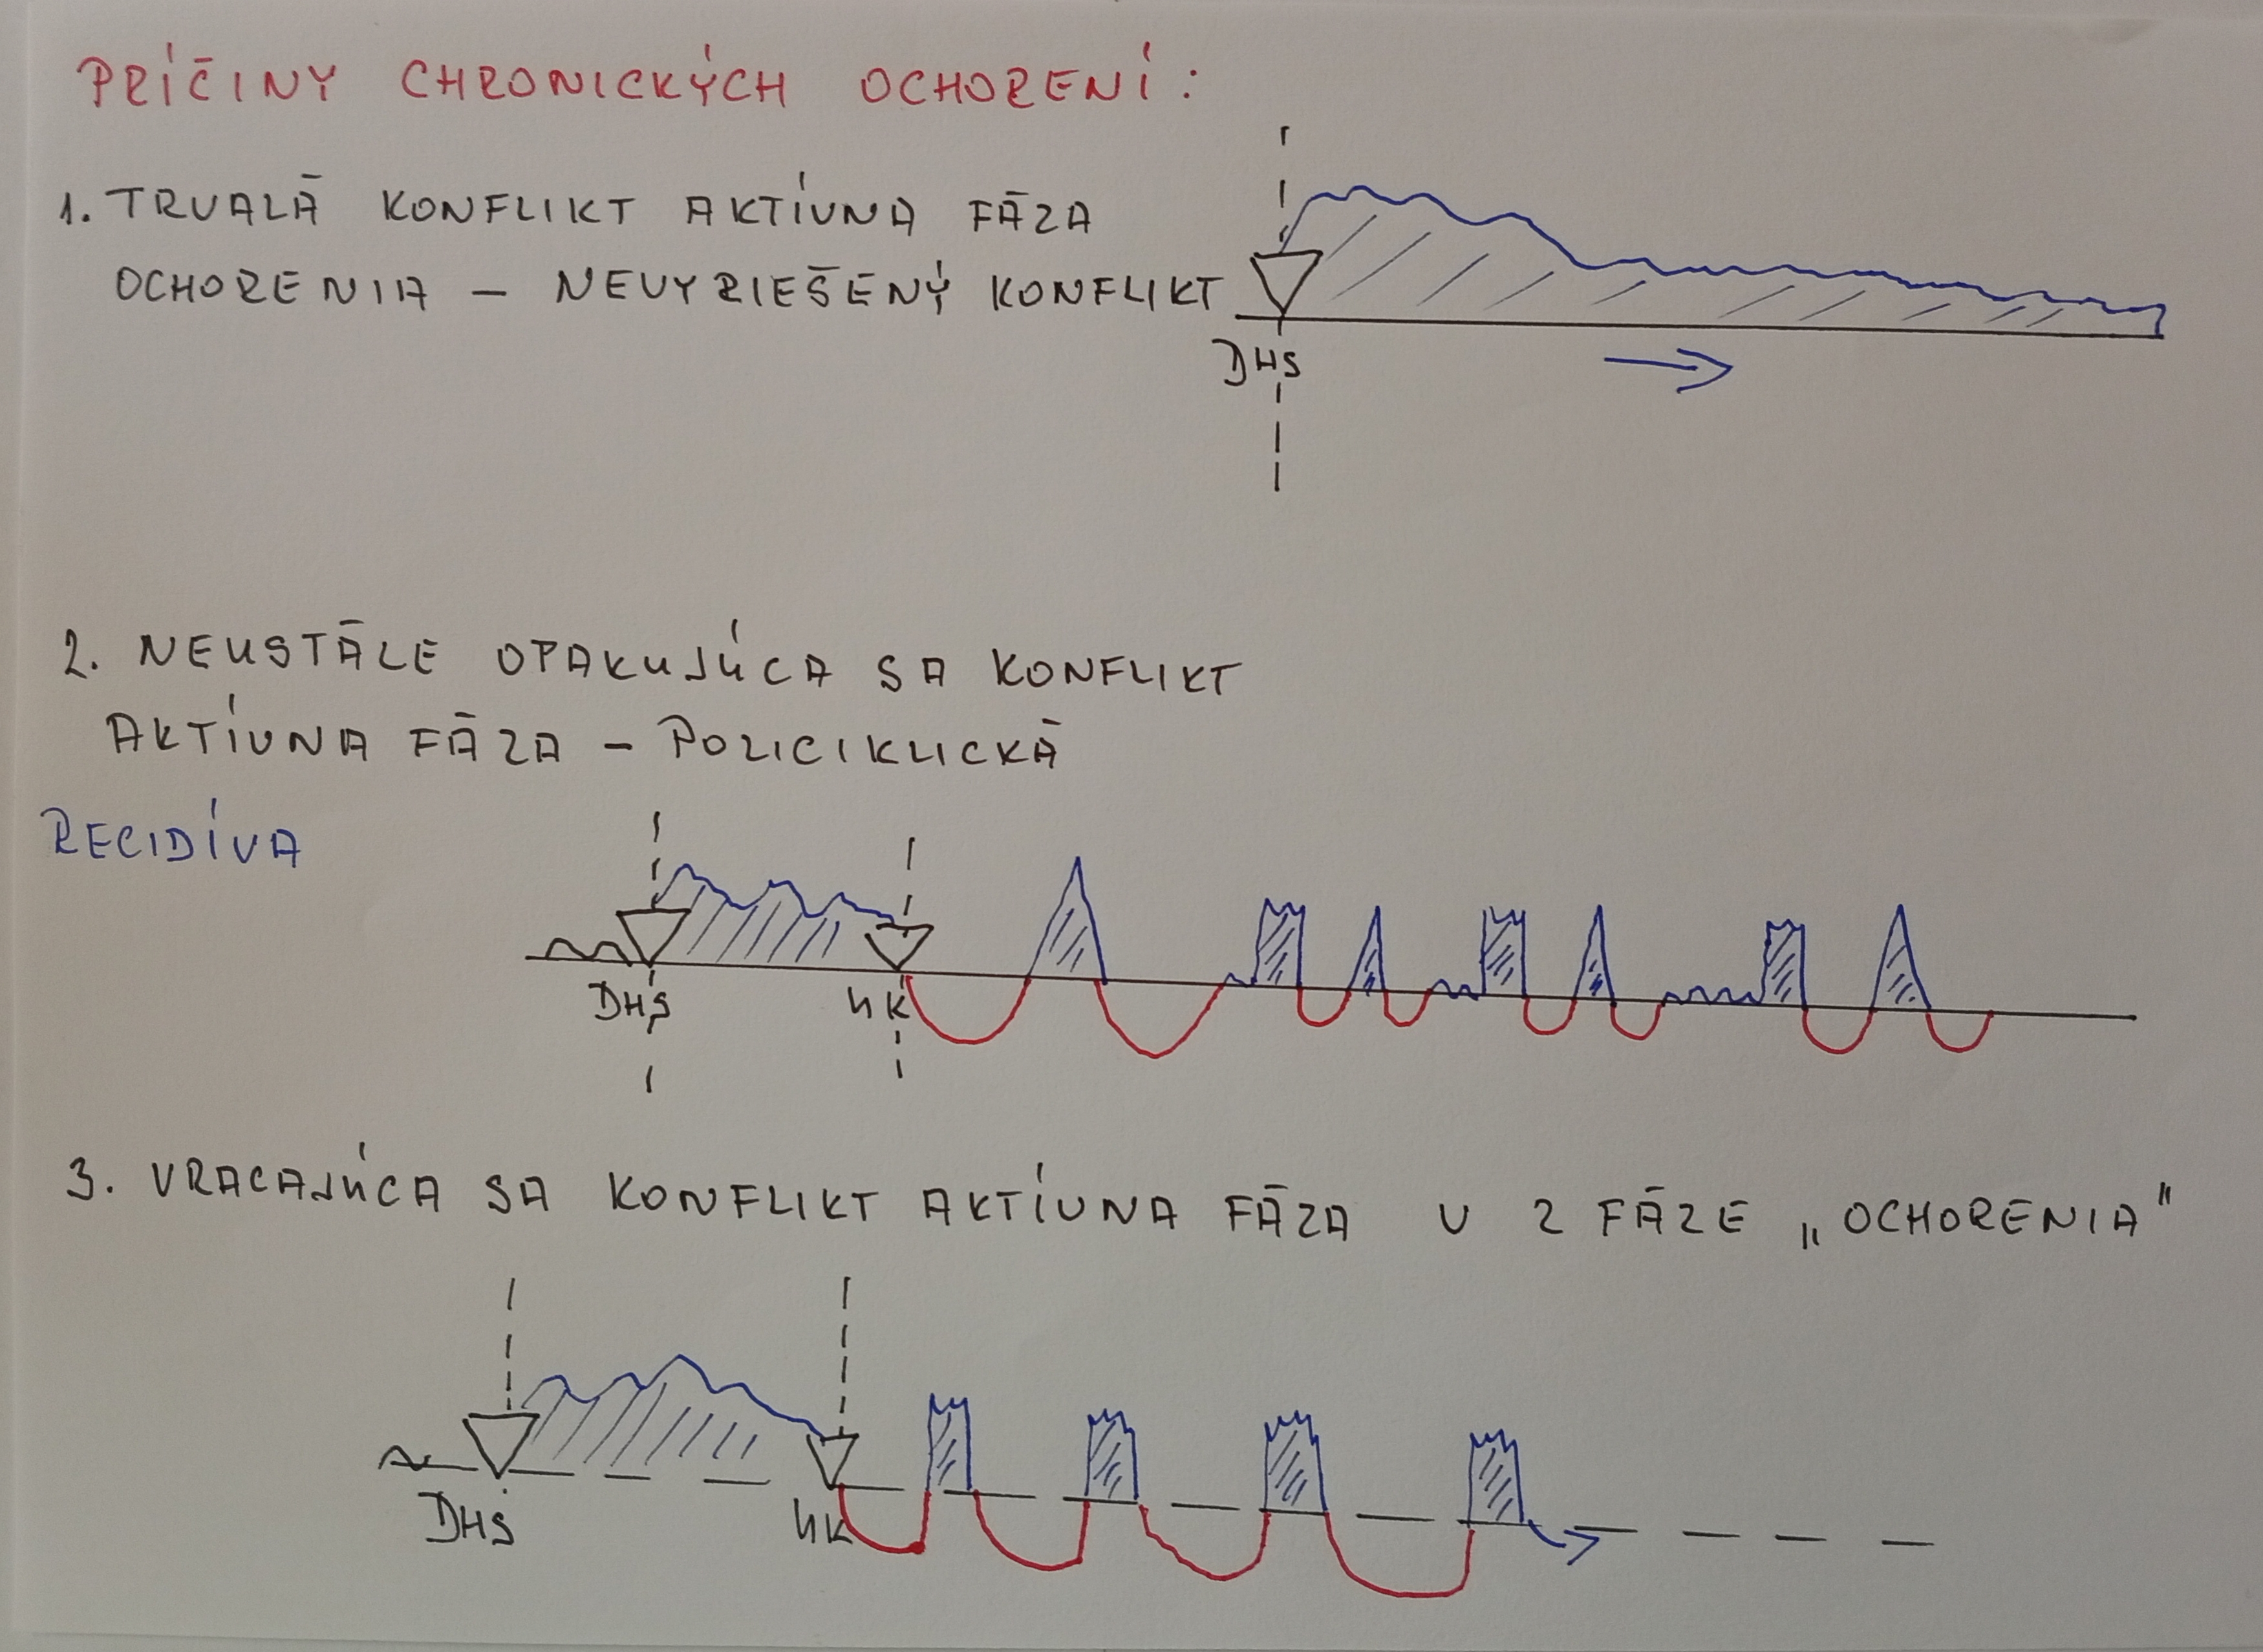 PRÍČINY CHRONICKÝCH OCHORENÍ:
1. TRVALÁ KONFLIKT AKTÍVNA FÁZA
OCHORENIA – NEVYRIEŠENÝ KONFLIKT
DHS
2. NEUSTÁLE OPAKUJÚCA SA KONFLIKT
AKTÍVNA FÁZA – POLICIKLICKÁ
RECIDÍVA
DHS UK
3. VRACAJÚCA SA KONFLIKT AKTÍVNA FÁZA V 2 FÁZE „OCHORENIA"
DHS UK